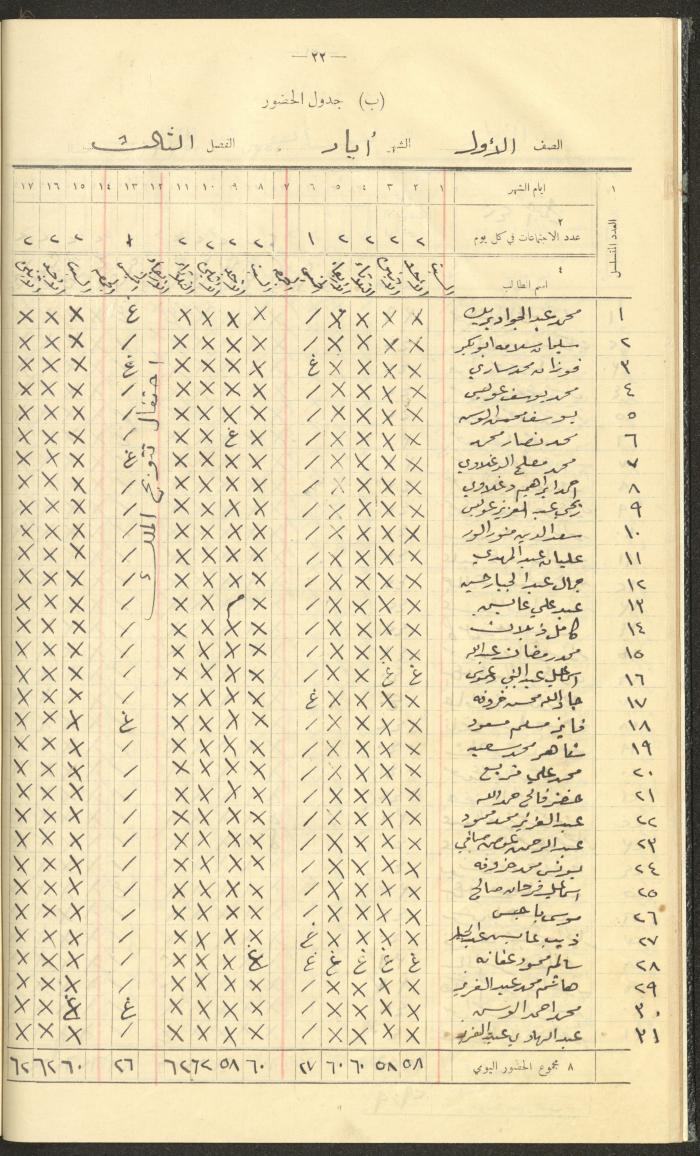 — ٢٢ —
(ب) جدول الحضور
الصف الأول الشهر أيار الفصل الثالث
١ ايام الشهر ١ ٢ ٣ ٤ ٥ ٦ ٧ ٨ ٩ ١٠ ١١ ١٢ ١٣ ١٤ ١٥ ١٦ ١٧
العدد المتسلسل
٢
عدد الاجتماعات في كل يوم ٢ ٢ ٢ ٢ ١ ٢ ٢ ٢ ٢ ١ ٢ ٢ ٢
٤
اسم الطالب السبت الأحد الاثنين الثلاثاء الاربعاء الخميس الجمعة السبت الأحد الاثنين الثلاثاء الاربعاء الخميس الجمعة السبت الأحد الاثنين
١ محمد عبد الجواد × × × × / × × × × غ × × ×
٢ سليمان سلامه ابو بكر × × × × / × × × × / × × ×
٣ فوزان محمد ساري × × × × غ × × × × غ × × ×
٤ محمد يوسف عويس × × × × / × × × × / × × ×
٥ يوسف × × × × / × × × × / × × ×
٦ محمد نصار محمد × × × × / × غ × × / × × ×
٧ محمد مفلح الدغلاوي × × × × / × × × × غ × × ×
٨ احمد ابراهيم دغلاوي × × × × / × × × × / × × ×
٩ عبد العزيز عويس × × × × / × × × × / × × ×
١٠ سعد الدين × × × × / × × × × / × × ×
١١ عليان عبد المهدي × × × × / × × × × / × × ×
١٢ جمال عبد الجبار حسين × × × × / × × × × / × × ×
١٣ عبد علي × × × × / × م × × / × × ×
١٤ كامل × × × × / × × × × / × × ×
١٥ محمد رمضان عبدالله × × × × / × × × × / × × ×
١٦ اسماعيل عبد النبي غ غ × × / × × × × / × × ×
١٧ جاد الله محسن خروفه × × × × غ × × × × / × × ×
١٨ فايز مسلم مسعود × × × × / × × × × غ × × ×
١٩ محمد سعيد × × × × / × × × × / × × ×
٢٠ محمد علي × × × × / × × × × / × × ×
٢١ خضر فالح حمدالله × × × × / × × × × / × × ×
٢٢ عبد العزيز محمد حمود × × × × / × × × × / × × ×
٢٣ عبد الرحمن عوض × × × × / × × × × / × × ×
٢٤ يونس محمد خروفه × × × × / × × × × / × × ×
٢٥ اسماعيل فرحان صالح × × × × / × × × × / × × ×
٢٦ موسى × × × × / × × × × / × × ×
٢٧ ذيب × × × × غ × × × × / × × ×
٢٨ سالم محمود عفانه غ غ غ غ غ غ × × × / × × ×
٢٩ هاشم محمد عبد العزيز × × × × / × × × × / × × ×
٣٠ محمد احمد × × × × / × × × × غ غ × ×
٣١ عبد الهادي عبد العزيز × × × × / × × × × / × × ×
احتفال تتويج الملك
٨ مجموع الحضور اليومي ٥٨ ٥٨ ٦٠ ٦٠ ٢٧ ٦٠ ٥٨ ٦٢ ٦٢ ٢٦ ٦٠ ٦٢ ٦٢